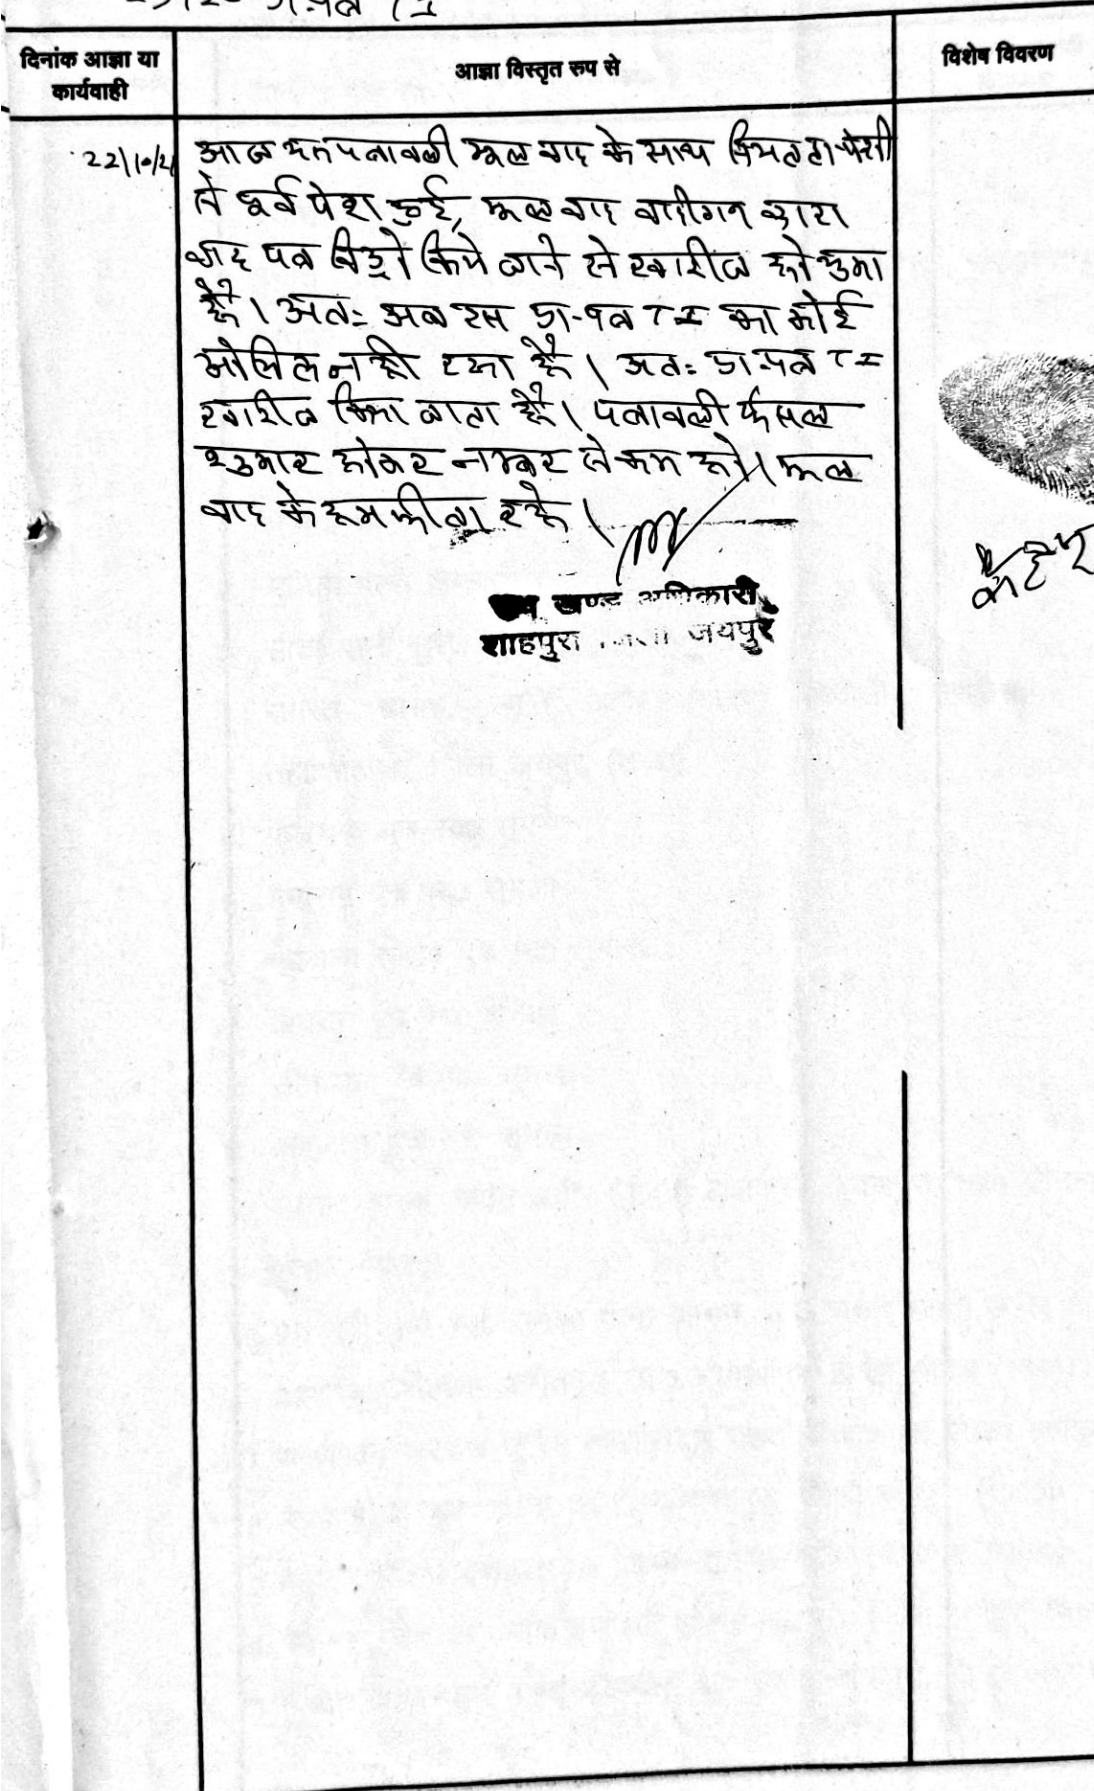 दिनांक आज्ञा या
कार्यवाही
आज्ञा विस्तृत रुप से
विशेष विवरण
22/10/21
आज पत्रावली मूल वाद के साथ नियत ता. पेशी
से पूर्व पेश हुई, मूल वाद वादीगन द्वारा
वाद पत्र विड्रो किये जाने से खारीज हो चुका
है। अतः अब इस प्रा-पत्र TI का कोई
नही रहा है। अतः प्रा.पत्र TI
खारीज किया जाता है। पत्रावली फैसल
शुमार होकर नम्बर से कम हो। मूल
वाद के हमफीता रहे।
उप खण्ड अधिकारी
शाहपुरा जिला जयपुर